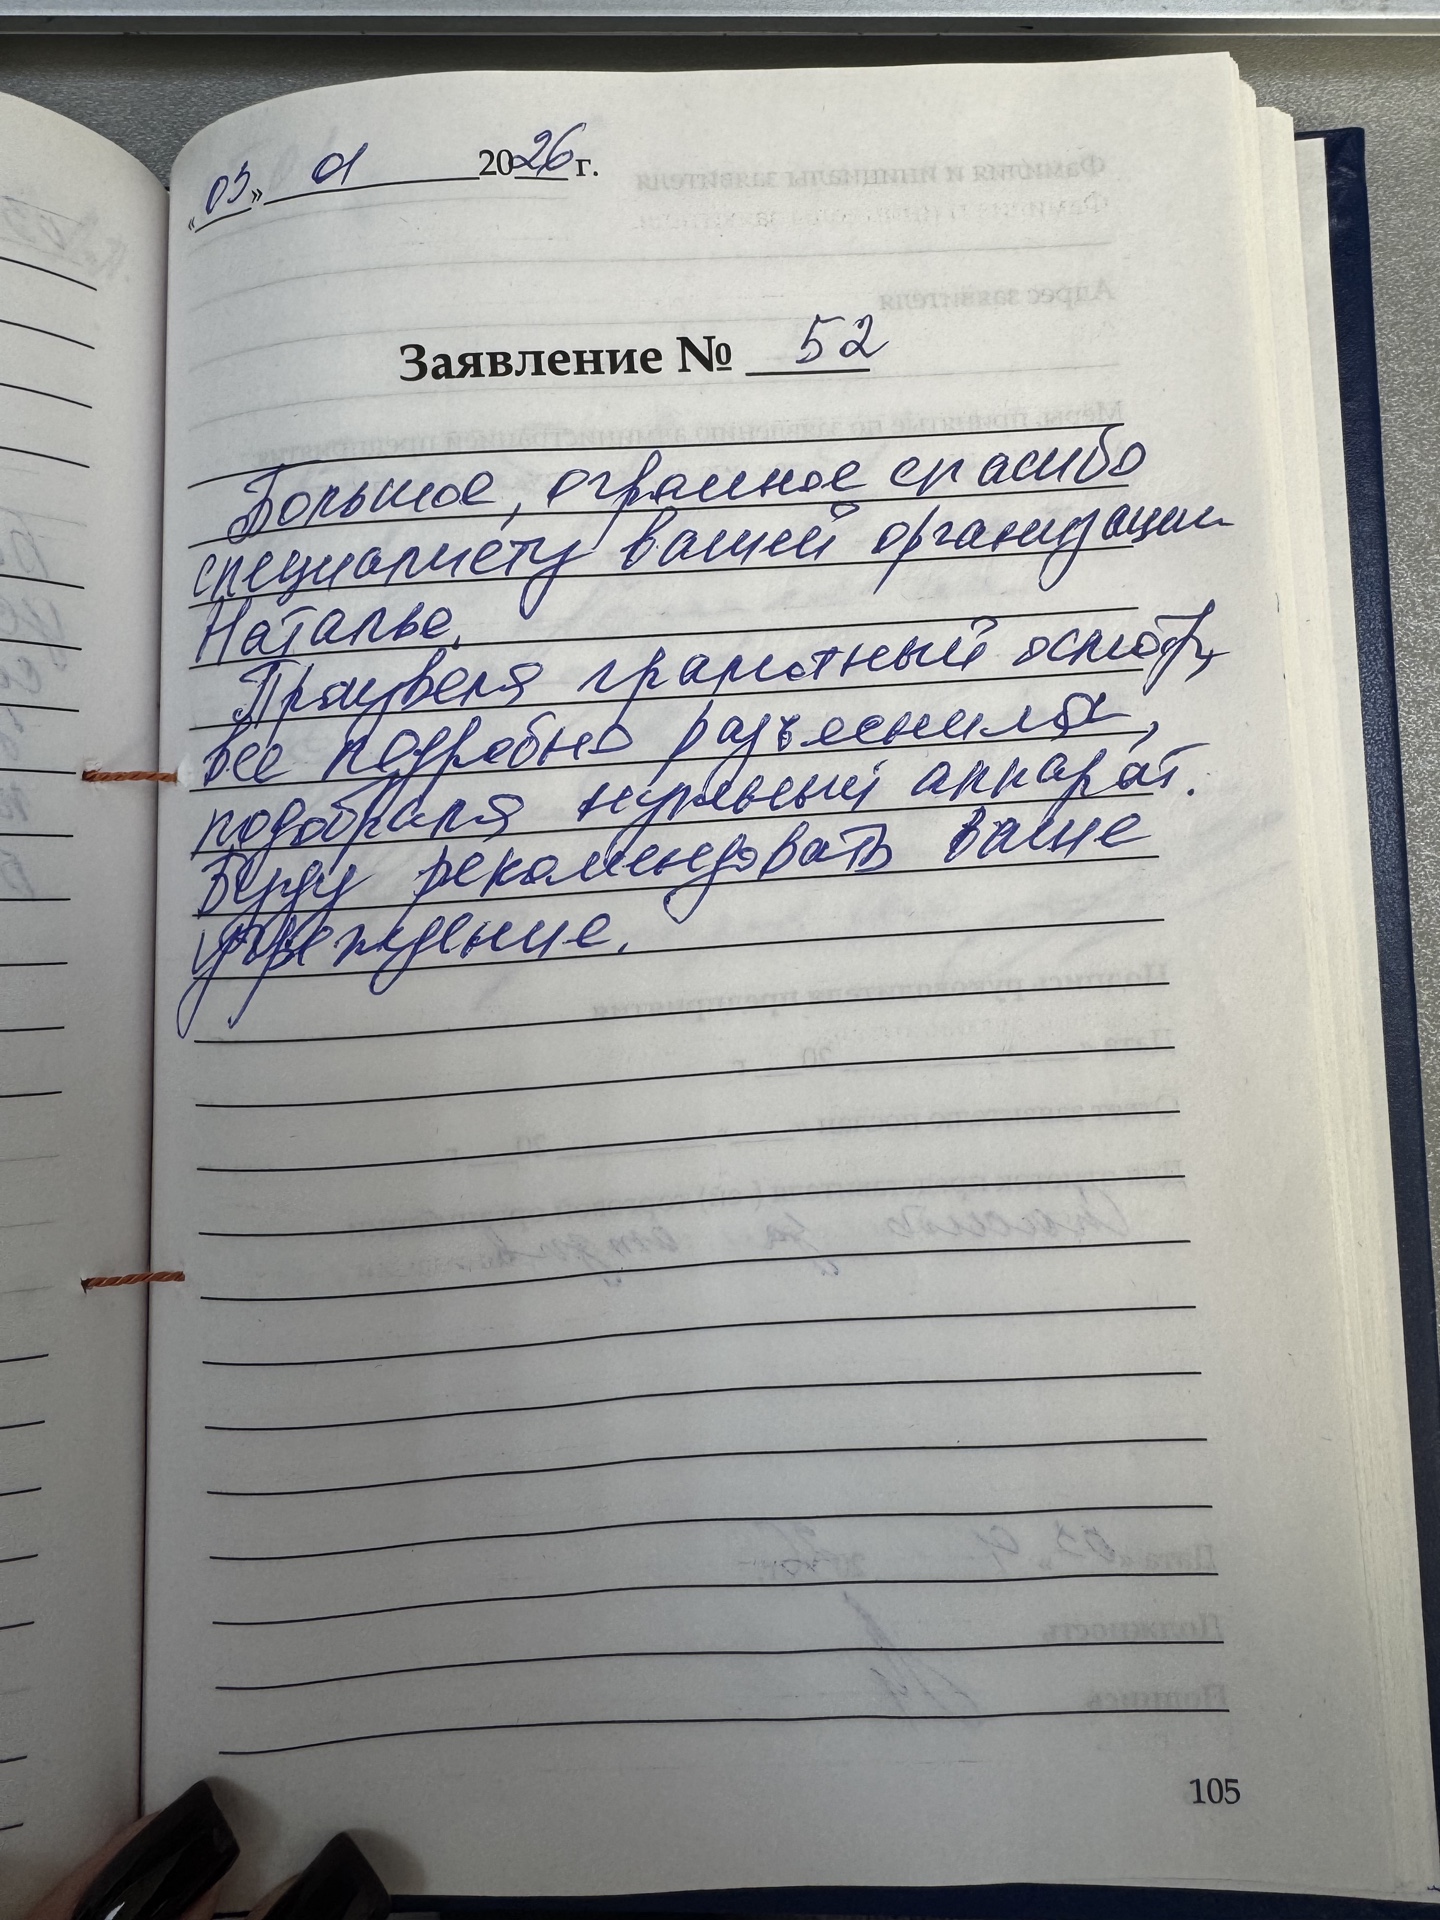 «03» 01 2026 г.
Заявление № 52
Большое, огромное спасибо
специалисту вашей организации
Наталье.
Произвела грамотный осмотр,
все подробно разъяснила,
подобрала нужный аппарат.
Буду рекомендовать ваше
учреждение.
105